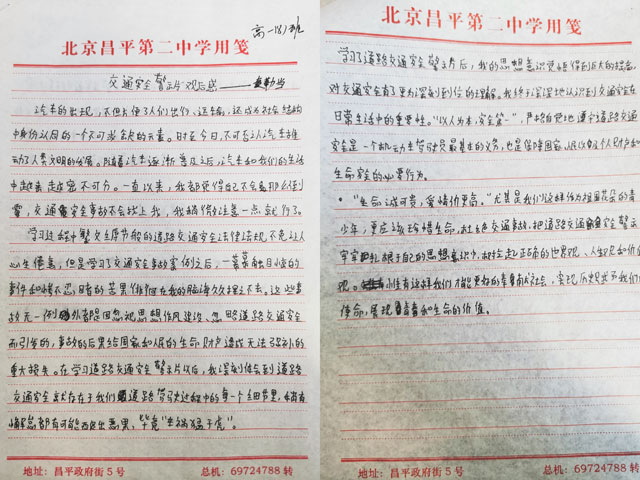 高一(8)班
北京昌平第二中学用笺
交通安全警示片观后感
汽车的出现,不但方便了人们出行、运输,还成为社会结构
中身份认同的一个不可或缺的元素。时至今日,不可否认汽车推
动了人类文明的发展。随着汽车逐渐普及之后,汽车和我们的生活
中越来越密不可分。一直以来,我都觉得自己不会那么倒
霉,交通安全事故不会找上我,我稍微注意一点就行了。
学习过程中警文章节般的道路交通安全法律法规不免让人
心生倦怠,但是学习了交通安全事故案例之后,一幕幕触目惊心的
事件和惨不忍睹的苦果徘徊在我的脑海久久挥之不去。这些事
故无一例外都是因忽视思想作风建设、忽略道路交通安全
而引发的,事故的后果给国家和人民的生命财产造成无法弥补的
重大损失。在学习道路交通安全警示片以后,我深刻体会到道路
交通安全就存在于我们道路驾驶过程中的每一个细节里,稍有
懈怠都有可能酿出恶果,毕竟“车祸猛于虎”。
地址:昌平政府街5号
总机:69724788转
北京昌平第二中学用笺
学习了道路交通安全警示片后,我的思想意识更得到巨大的提高,
对交通安全有了更为深刻到位的理解。我终于深深地认识到交通安全在
日常生活中的重要性。“以人为本,安全第一”,严格自觉地遵守道路交通
安全是一个机动车驾驶员最基本的义务,也是保障国家、人民以及个人财产和
生命安全的必要行为。
“生命诚可贵,爱情价更高。”尤其是我们这样作为祖国花朵的青
少年,更应该珍惜生命,杜绝交通事故,把道路交通安全警示
牢牢扎根于自己的思想意识中,树立起正确的世界观、人生观和价值
观。小有这样我们才能更好的奉献社会,实现历史赋予我们的
使命,展现青春和生命的价值。
地址:昌平政府街5号
总机:69724788转